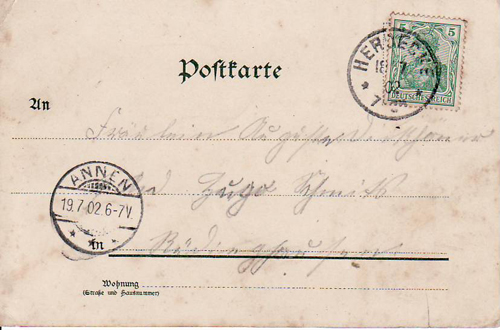 Postkarte
5 5
DEUTSCHES REICH
HERDECKE
18 7
02
7-8
An
Fräulein
ANNEN
19.7.02.6-7V.
Hugo Schmidt
in
Rüdinghausen
Wohnung
(Straße und Hausnummer)